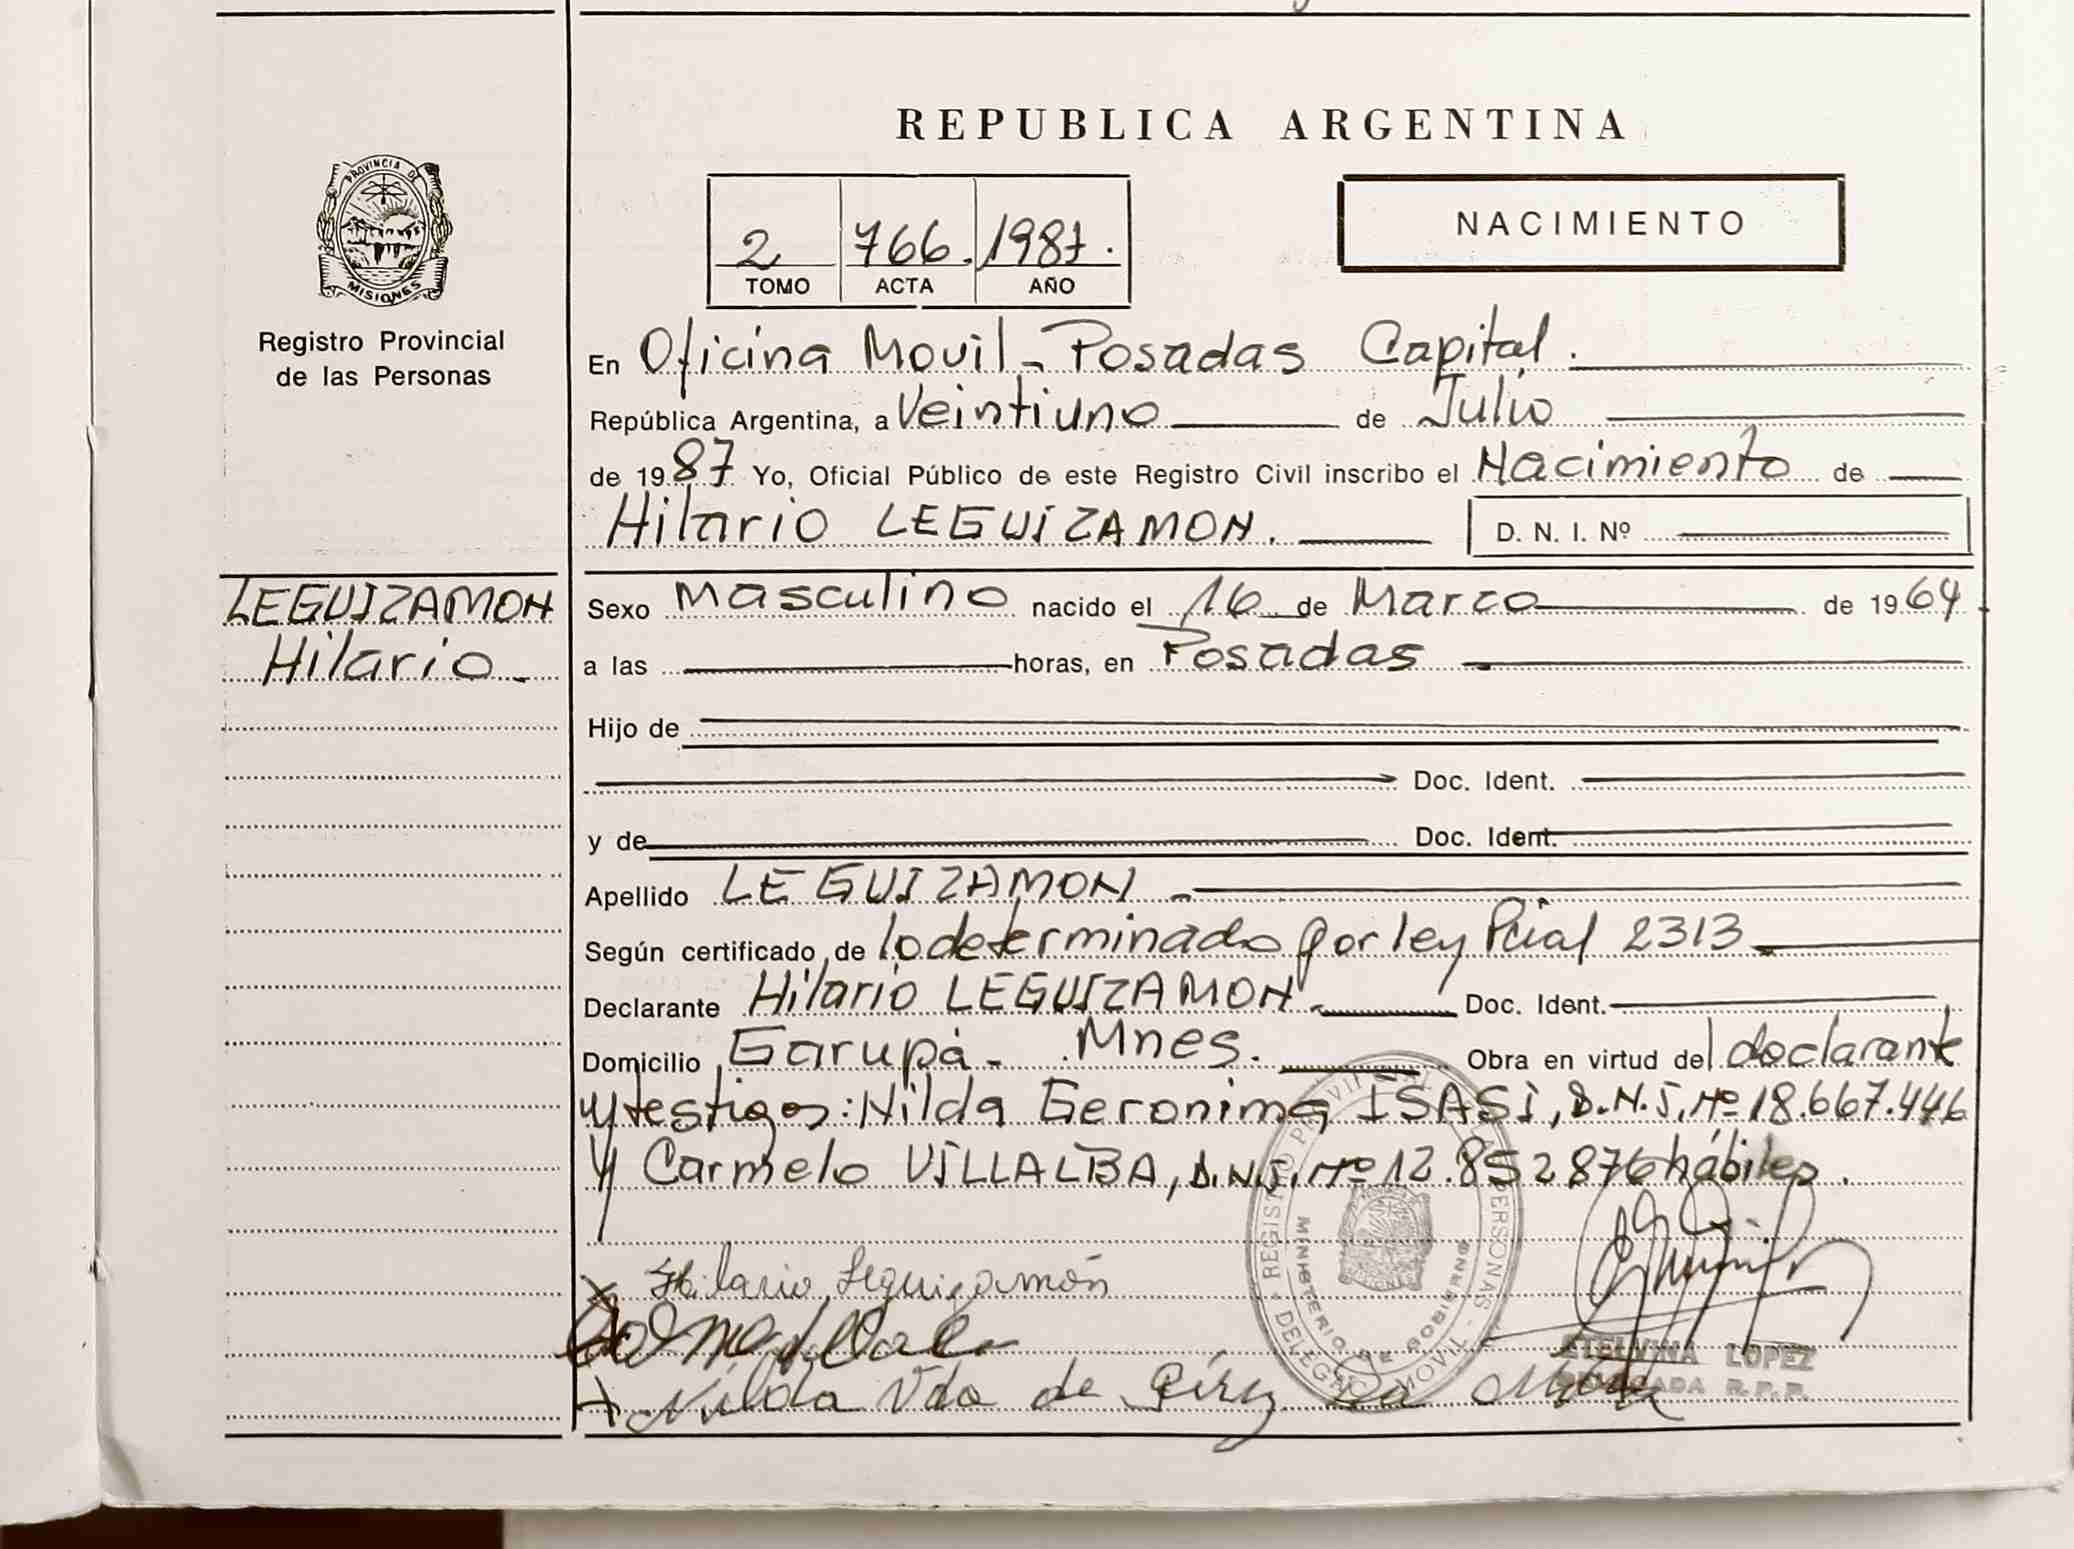 REPUBLICA ARGENTINA
PROVINCIA DE
MISIONES
Registro Provincial
de las Personas
2 766. 1987.
TOMO ACTA AÑO
NACIMIENTO
En Oficina Movil - Posadas Capital.
República Argentina, a Veintiuno de Julio
de 1987 Yo, Oficial Público de este Registro Civil inscribo el Nacimiento de
Hilario LEGUIZAMON. D. N. I. Nº
LEGUIZAMON
Hilario
Sexo Masculino nacido el 16 de Marzo de 1964
a las horas, en Posadas
Hijo de
Doc. Ident.
y de Doc. Ident.
Apellido LEGUIZAMON
Según certificado de lo determinado por ley Pcial 2313
Declarante Hilario LEGUIZAMON Doc. Ident.
Domicilio Garupá - Mnes. Obra en virtud del declarante
y testigos: Nilda Geronima ISASI, D.N.I. Nº 18.667.446
y Carmelo VILLALBA, D.N.I. Nº 12.852876 hábiles.
REGISTRO PROVINCIAL DE LAS PERSONAS - DELEGAC. MOVIL -
MINISTERIO DE GOBIERNO
x Hilario Leguizamón
ETELVINA LOPEZ
DELEGADA R.P.P.
x Nilda Vda de Pírez Da